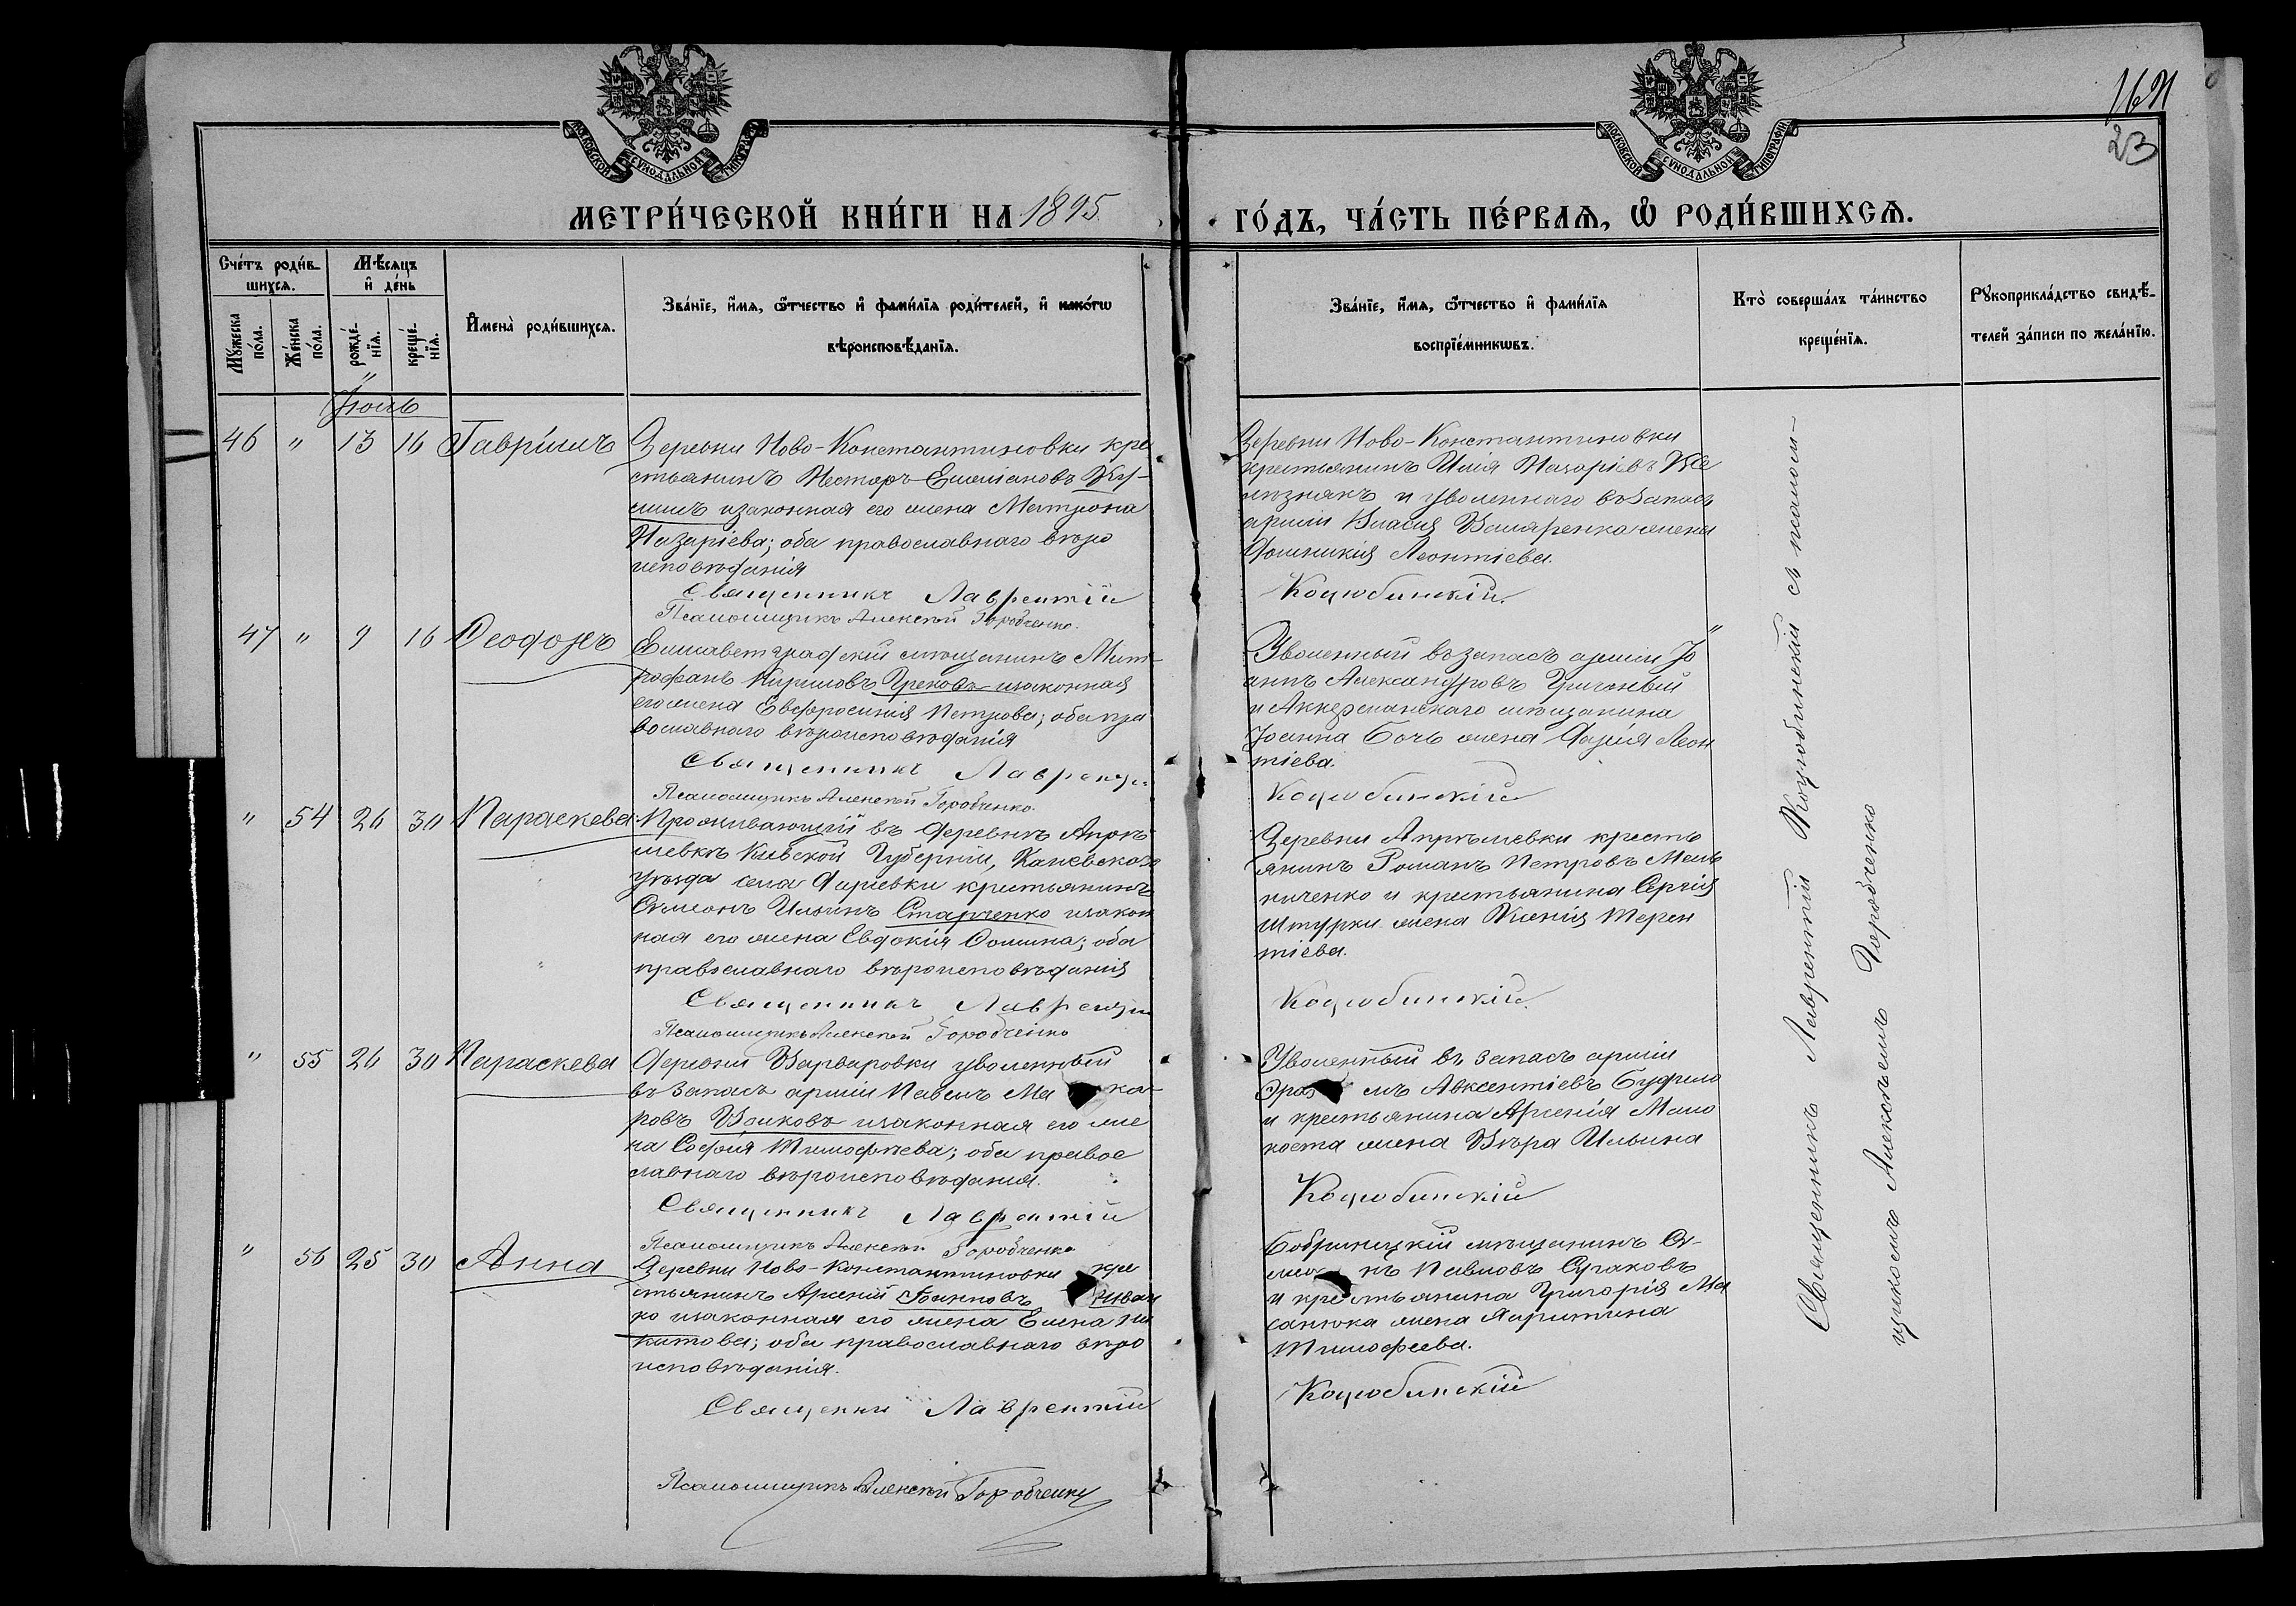 МОСКОВСКОЙ СѴНОДАЛЬНОЙ ТИПОГРАФІИ
МОСКОВСКОЙ СѴНОДАЛЬНОЙ ТИПОГРАФІИ
23
МЕТРИ́ЧЕСКОЙ КНИ́ГИ НА 1895
ГО́ДЪ, ЧА́СТЬ ПЕ́РВАЯ, Ѡ РОДИ́ВШИХСЯ.
Сче́тъ роди́в-
шихся.
Мꙋ́жеска по́ла.
Же́нска по́ла.
Мѣ́сяцъ
и҆ де́нь
рожде́-
нїя.
креще́-
нїя.
И҆мена̀ роди́вшихся.
Зва́нїе, и҆́мя, ѻ҆́тчество и҆ фами́лїя роди́телей, и҆ како́гѡ
вѣроисповѣ́данїя.
Зва́нїе, и҆́мя, ѻ҆́тчество и҆ фами́лїя
воспрїе́мникѡвъ.
Кто̀ соверша́лъ та́инство
креще́нїя.
Рꙋкоприкла́дство свидѣ́-
телей за́писи по жела́нїю.
Іюль
46 " 13 16 Гавріилъ
Деревни Ново-Константиновки кре
стьянинъ Несторъ Емеліановъ
изаконная его жена Матрона
Назаріева; оба православнаго вѣро
исповѣданія
Священникъ Лаврентій
Псаломщикъ Алексѣй Горобченко.
Деревни Ново-Константиновки
крестьянинъ Илія Назаріевъ Же
лѣзнякъ и уволеннаго въ запасъ
арміи Власія жена
Домникія Леонтіева.
Коцюбинскій.
47 " 9 16 Ѳеодоръ
Елисаветградскій мѣщанинъ Мит-
рофанъ Кириловъ Грековъ изаконная
его жена Евфросинія Петрова; оба пра
вославнаго вѣроисповѣданія
Священникъ Лаврентій
Псаломщикъ Алексѣй Горобченко.
Уволенный въ запасъ арміи Іо
аннъ Александровъ
и Аккерманскаго мѣщанина
Іоанна Бочъ жена Дарія Леон
тіева.
Коцюбинскій
" 54 26 30 Параскева
Проживающій въ деревнѣ Апрѣ
левкѣ Кіевской Губерніи, Каневскаго
уѣзда села крестьянинъ
Симеонъ Ильинъ Старченко изакон
ная его жена Евдокія Ѳомина; оба
православнаго вѣроисповѣданія
Священникъ Лаврентій
Псаломщикъ Алексѣй Горобченко
Деревни Апрѣлевки кресть
янинъ Романъ Петровъ Мель
ниченко и крестьянина Сергія
Штурки жена Ксенія Терен
тіева.
Коцюбинскій.
" 55 26 30 Параскева
Деревни Варваровки уволенный
въ запасъ арміи Павелъ Ма ка-
ровъ Волковъ изаконная его же
на Софія Тимофѣева; оба правос
лавнаго вѣроисповѣданія.
Священникъ Лаврентій
Псаломщикъ Алексѣй Горобченко
Уволенный въ запасъ арміи
Ера мъ Авксентіевъ Будило
и крестьянина Арсенія Мало
коста жена Вѣра Ильина
Коцюбинскій
" 56 25 30 Анна
Деревни Ново-Константиновки кре
стьянинъ Арсеній Іоанновъ
ко изаконная его жена Елена Ни
китова; оба православнаго вѣро
исповѣданія.
Священникъ Лаврентій
Псаломщикъ Алексѣй Горобченко
Бобринецкій мѣщанинъ Си-
мео нъ Павловъ Судаковъ
и крестьянина Григорія Ма
санюка жена Харитина
Тимофеева.
Коцюбинскій
Священникъ Лаврентій Коцюбинскій съ псалом-
щикомъ Алексѣемъ Горобченко